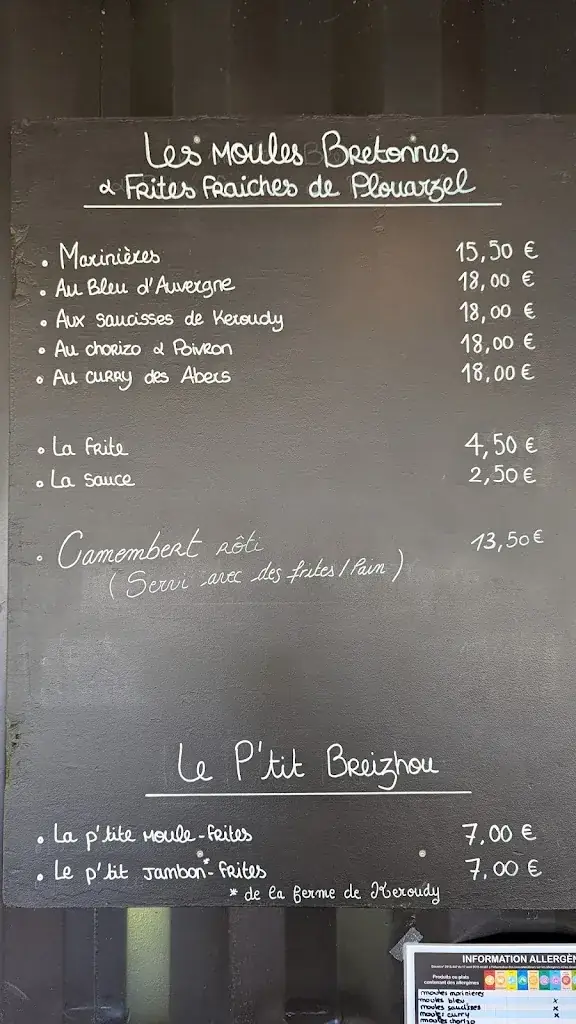 Les Moules Bretonnes
& Frites Fraiches de Plouarzel
• Marinières 15,50 €
• Au Bleu d'Auvergne 18,00 €
• Aux saucisses de Keroudy 18,00 €
• Au chorizo & Poivron 18,00 €
• Au curry des Abers 18,00 €
• La frite 4,50 €
• La sauce 2,50 €
• Camembert rôti 13,50 €
(Servi avec des frites / Pain)
Le P'tit Breizhou
• La p'tite moule-frites 7,00 €
• Le p'tit jambon*-frites 7,00 €
* de la ferme de Keroudy
INFORMATION ALLERGÈN
Produits ou plats
contenant des allergènes
moules marinieres
moules bleu x
moules saucisses x
moules curry x
moules chorizo